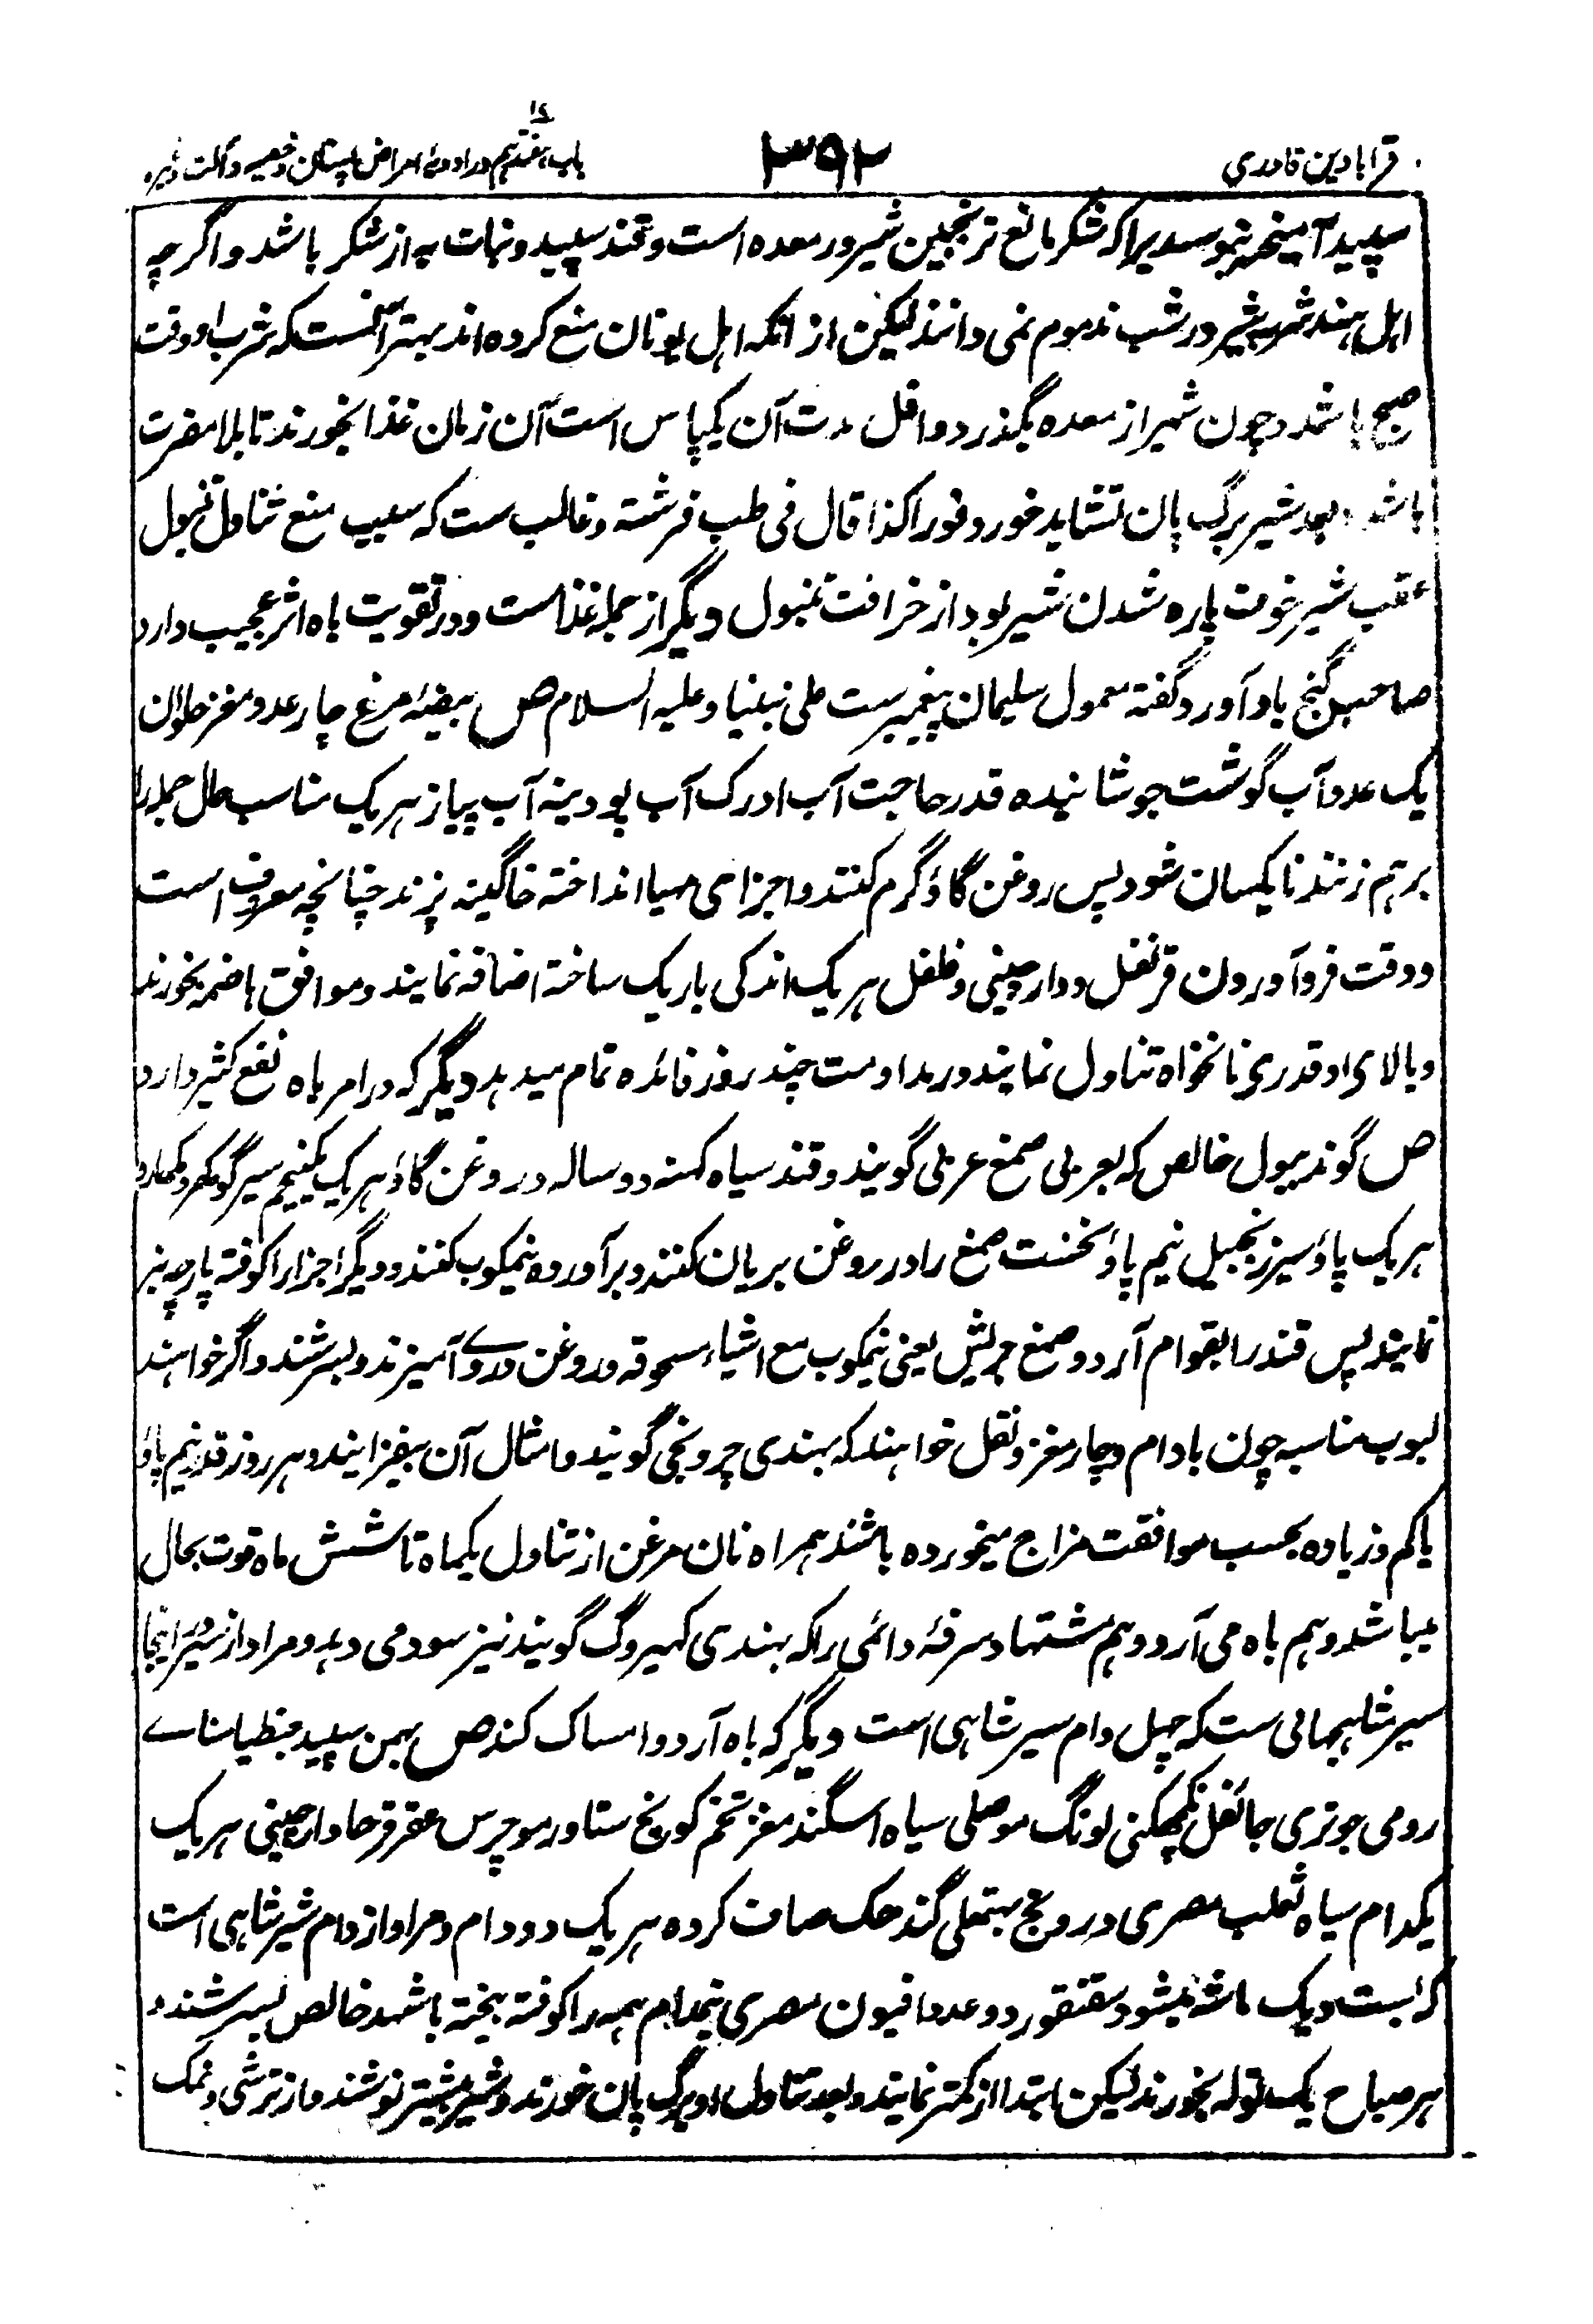 قرابادین قادری
۳۹۲
باب هفتدهم در ادویهٔ امراض پستان و خصیه و آلت وغیره
سپید آمیخته بنوشند زیرا که شکر مانع تر نجبین شیر در معده است و قند سپید و نبات به از شکر باشد و اگرچه
اہل ہند شرب شیر در شب مذموم نمی دانند لیکن از انکه اہل یونان منع کرده اند بہتر آنست که شرب او وقت
صبح باشد و چون شیر از معده بگذرد و اقل مدت آن یکپاس است آن زمان غذا بخورند تا بلا مضرت
باشد و بعد شیر برگ پان نشاید خورد فورا کذا قال فی طب فرشته و غالب ست که سبب منع تناول تنبول
عقب شیر خوف پاره شدن شیر بود از خرافت تنبول دیگر از جمله غذاست و در تقویت باه اثر عجیب دارد
صاحب گنج باد آورد گفته معمول سلیمان پیغمبر ست علی نبینا و علیه السلام ص بیضهٔ مرغ چار عدد مغز حلوان
یک عدد آب گوشت جوشانیده قدر حاجت آب ادرک آب پودینه آب پیاز ہر یک مناسب حال جمله را
برہم زنند تا یکسان شود پس روغن گاؤ گرم کنند و اجزای مہیا انداخته خاگینه پزند چنانچه معروف است
و وقت فرو آوردن قرنفل و دارچینی و فلفل ہر یک اندکی باریک ساخته اضافه نمایند و موافق ہاضمه بخورند
و بالای او قدری نانخواه تناول نمایند و در مداومت چند روز فائده تمام میدہد دیگر که در امر باه نفع کثیر دارد
ص گوند ببول خالص که بعربی صمغ عربی گویند و قند سیاه کہنه دو ساله در روغن گاؤ ہر یک یکنیم سیر گوکھرو
ہر یک پاؤ سیر زنجبیل نیم پاؤ نخست صمغ را در روغن بریان کنند و برآورده نیمکوب کنند و دیگر اجزا را کوفته پارچه بیز
نمایند پس قند را بقوام آرد و صمغ جریش یعنی نیمکوب مع اشیاء مسحوقه و روغن دروے آمیزند و بسرشند و اگر خواہند
لبوب مناسبه چون بادام و چار مغز و نقل خواہند که بہندی چرونجی گویند و امثال آن بیفزایند و ہر روز قدر نیم پاؤ
یا کم و زیاده بحسب موافقت مزاج میخورده باشند ہمراه نان مرغن از تناول یکماه تا شش ماه قوت بحال
میباشد و ہم باه می آرد و ہم اشتہا و سرفهٔ دائمی را که بہندی کہیروگ گویند نیز سود می دہد و مراد از سیر در اینجا
سیر شاہجہانی ست که چہل دام سیر شاہی است دیگر که باه آرد و امساک کند ص بہمن سپید جنطیاناے
رومی جوتری جائفل نکچھکنی لونگ موصلی سیاه اسگند مغز تخم کونچ ستاور موچرس عقرقرحا دارچینی ہر یک
یکدام سیاه ثعلب مصری درونج گندہک صاف کرده ہر یک دو دام و مراد از دام شیر شاہی است
که بست و یک ماشه میشود سقنقور دو عدد افیون مصری نیمدام ہمه را کوفته بیخته با شہد خالص بسرشند و
ہر صباح یک توله بخورند لیکن ابتدا از کمتر نمایند و بعد تناول او برگ پان خورند و شیر بیشتر نوشند و از ترشی و نمک